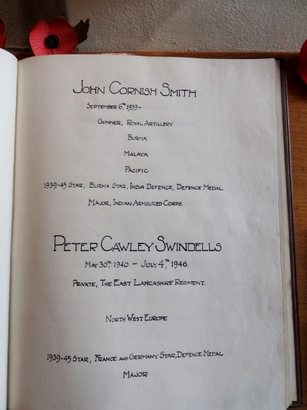 JOHN CORNISH SMITH
SEPTEMBER 6TH 1939-
GUNNER, ROYAL ARTILLERY
BURMA
MALAYA
PACIFIC
1939-45 STAR, BURMA STAR, INDIA DEFENCE, DEFENCE MEDAL
MAJOR, INDIAN ARMOURED CORPS.
PETER CAWLEY SWINDELLS
MAY 30TH 1940 - JULY 4TH 1946.
PRIVATE, THE EAST LANCASHIRE REGIMENT.
NORTH WEST EUROPE
1939-45 STAR, FRANCE AND GERMANY STAR, DEFENCE MEDAL
MAJOR